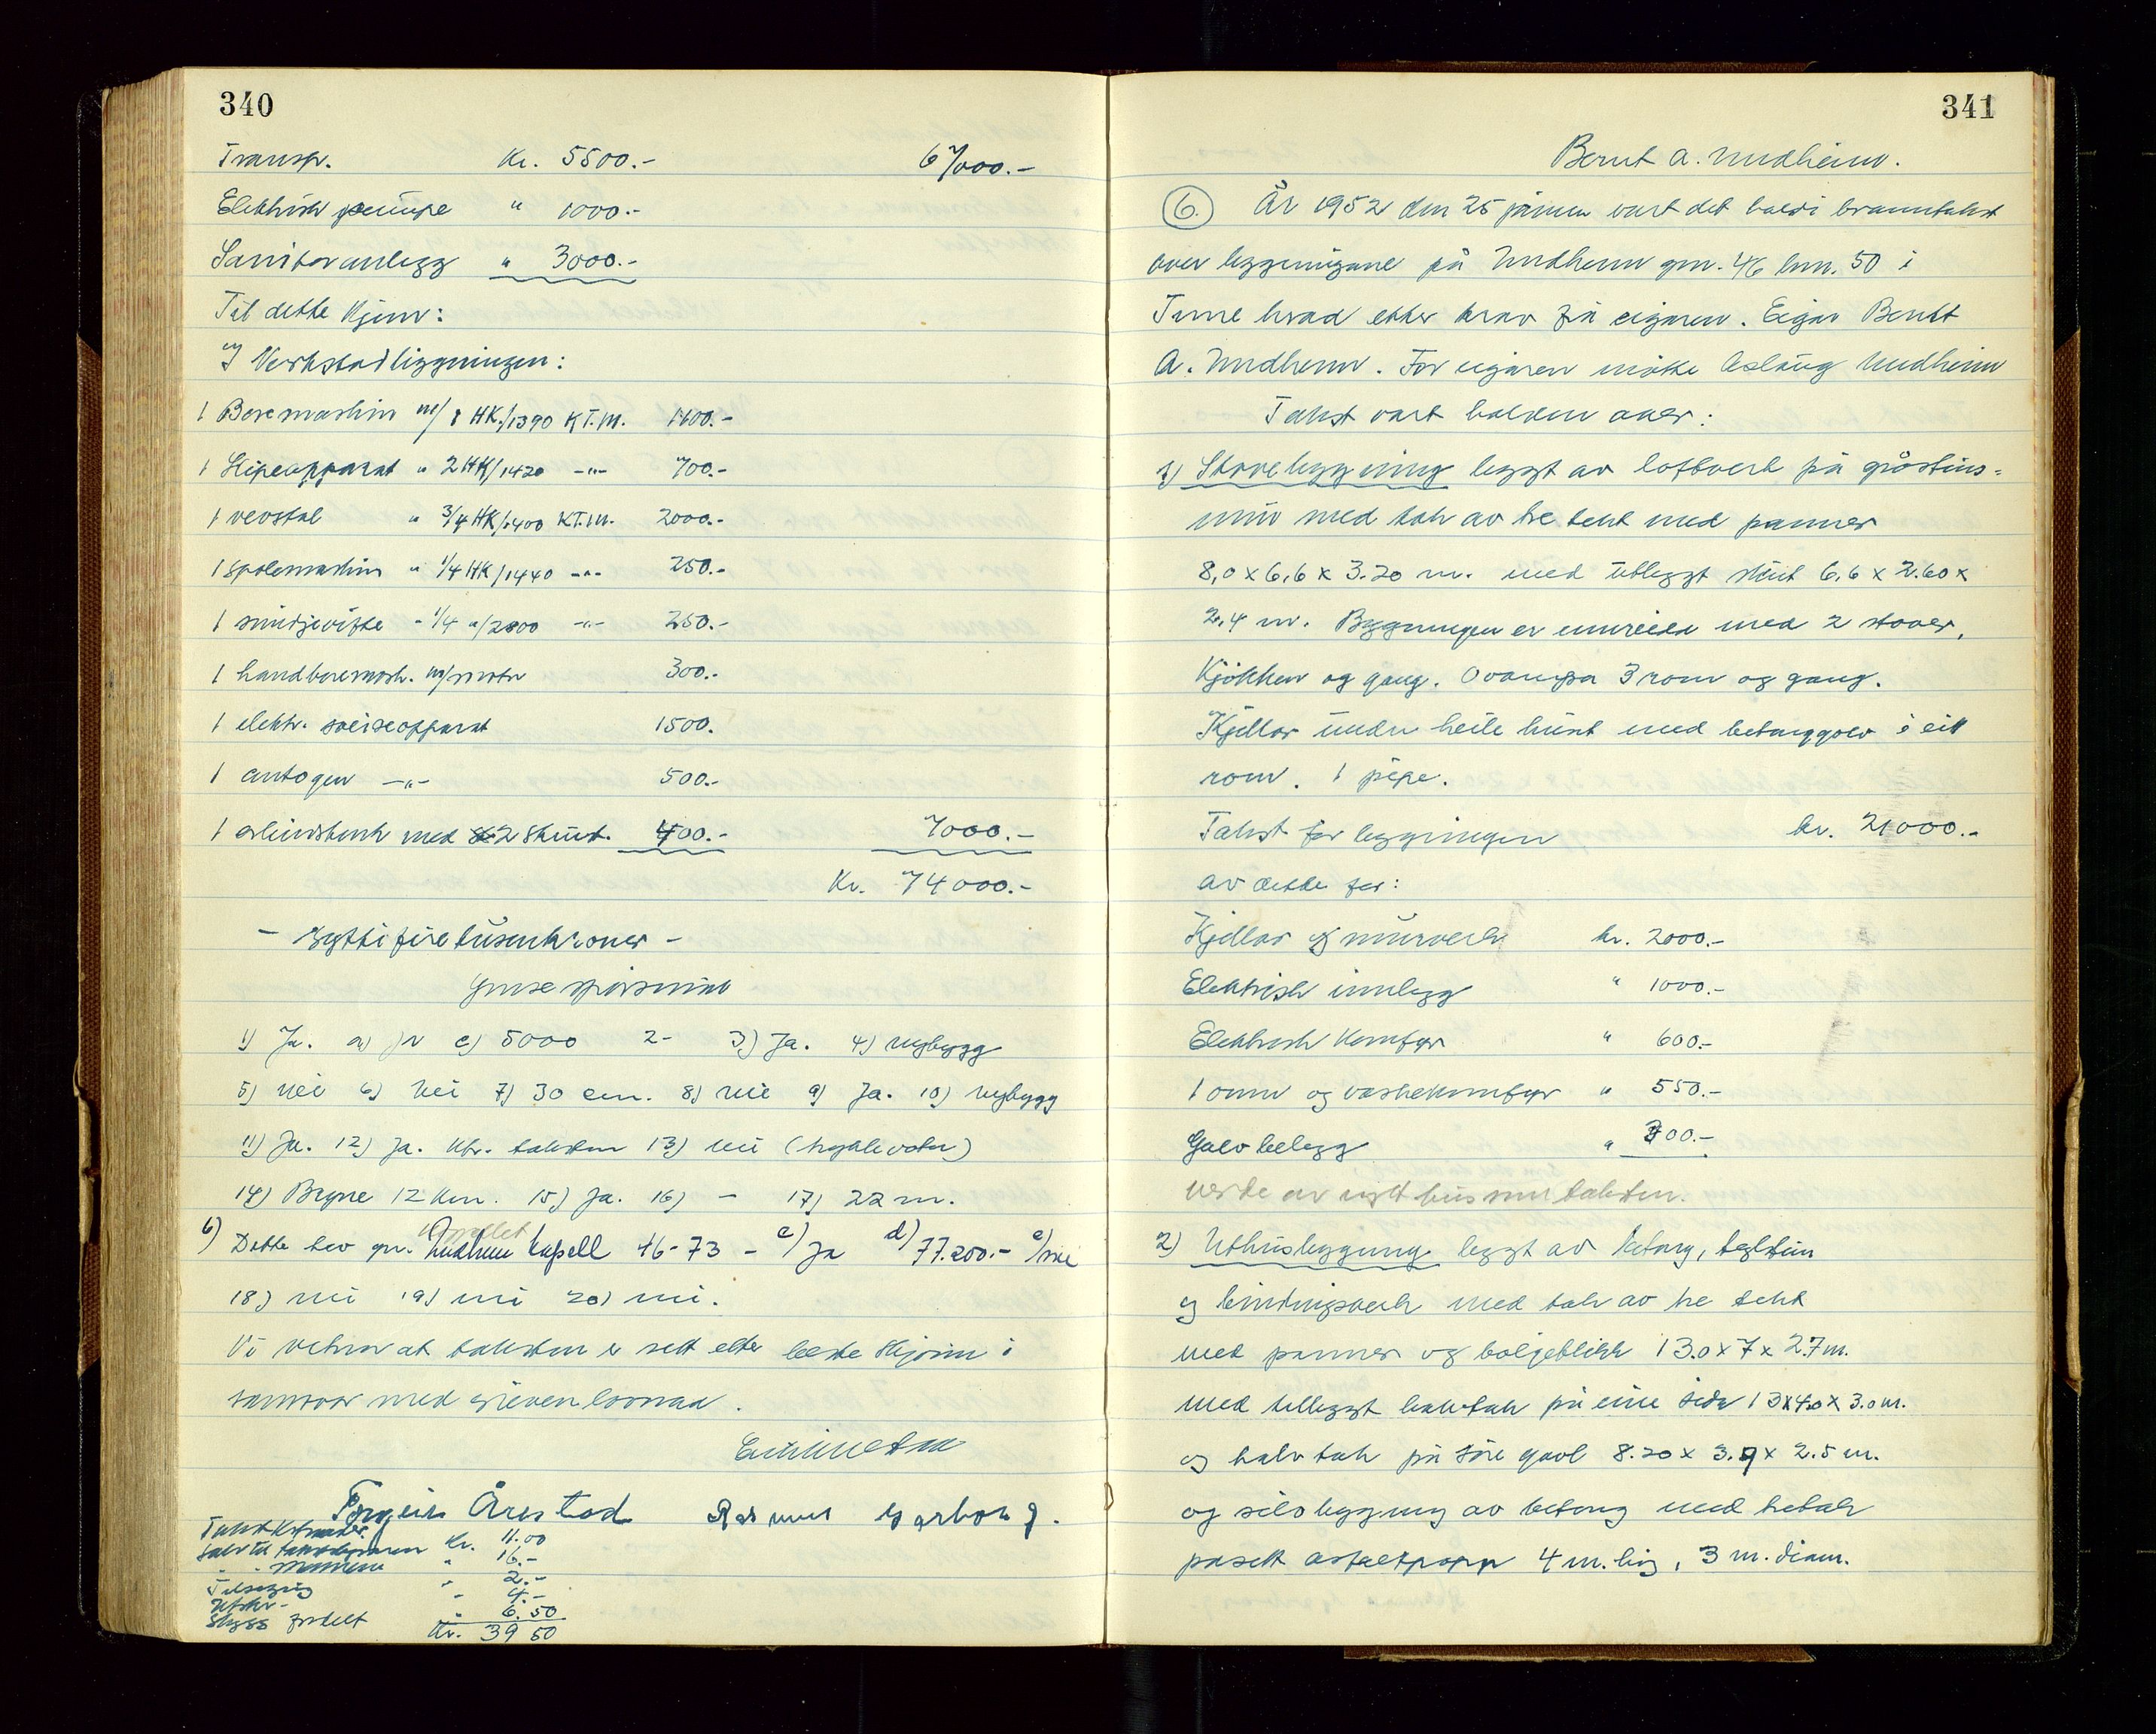 340
Transp. Kr. 5500.- 67000.-
Elektrisk pumpe " 1000.-
Sanitæranlegg " 3000.-
Til dette kjem:
I Verkstadbyggningen:
1 Boremaskin m/ 1 HK./1390 KT.M. 1100.-
1 Slipeapparat " 2 HK/1420 -"- 700.-
1 vevstol " 3/4 HK/1400 KT.M. 2000.-
1 spolemaskin " 1/4 HK/1440 -"- 250.-
1 smidjevifte " 1/4 "/2800 -"- 250.-
1 handboremask. m/motor 300.-
1 elektr. sveiseapparat 1500.
1 autogen -"- 500.-
1 arbeidsbenk med 2 skruvst. 400.- 7000.-
Kr. 74000.-
- syttifiretusenkroner -
Ymse spørsmål
1) Ja. a) ja c) 5000 2- 3) Ja. 4) nybygg
5) nei 6) Nei 7) 30 cm. 8) nei 9) Ja. 10) nybygg
11) Ja. 12) Ja. Utv. taksten 13) nei
14) Bryne 12 km. 15) Ja. 16) - 17) 22 m.
6) Dette bev gnr. Undheim kapell 46-73 - c) Ja d) 77.200.- e) nei
18) nei 19) nei 20) nei.
Vi vitnar at taksten er sett etter beste skjønn i
samsvar med
Torgeir Årestad Rasmus Garborg.
Takstkostnader.
Salær til takstformannen Kr. 11.00
" - mennene " 16.-
Tilsegjing " 2.-
Utskr. - " 4.-
Skyss fordelt " 6.50
Kr. 39 50
341
Bernt A. Undheim.
6. År 1952 den 25 januar vart det haldi branntakst
over byggningane på Undheim gnr. 46 bnr. 50 i
Time herad etter krav frå eigaren. Eigar Berndt
A. Undheim. For eigaren møtte Aslaug Undheim
Takst vart halden over:
1) Stovebyggning byggt av loftverk på gråsteins=
mur med tak av tre tekt med panner
8,0 x 6,6 x 3.20 m. med utbyggt skut 6,6 x 2.60 x
2,4 m. Byggningen er innreidd med 2 stover,
Kjøkken og gang. Ovanpå 3 rom og gang.
Kjellar under heile huset med betonggolv i eitt
rom. 1 pipe.
Takst for byggningen kr. 21000.-
av dette for:
Kjellar og murverk kr. 2000.-
Elektrisk innlegg " 1000.-
Elektrisk Komfyr " 600.-
1 omn og vaskekomfyr " 550.-
Golvbelegg " 300.-
verde av nytt hus som taksten.
2) Uthusbyggning byggt av betong, teglstein
og bindingsverk med tak av tre tekt
med panner og bølgjeblikk 13.0 x 7 x 2.7 m.
med tilbyggt halvtak på eine sida 13 x 4.0 x 3.0 m.
og halvtak på søre gavl 8.20 x 3.9 x 2.5 m.
og silobyggning av betong med tretak
påsett asfaltpapp 4 m. høg, 3 m. diam.